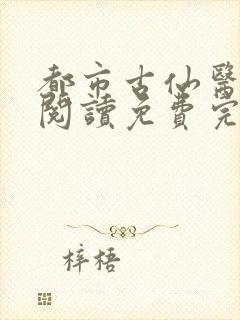 都市古仙醫
閱讀免費完
梓梧